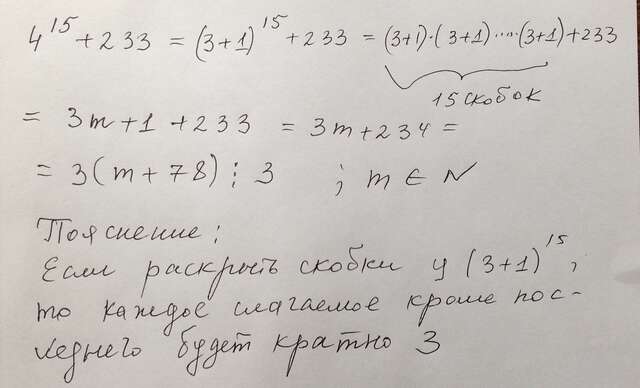 4^15 + 233 = (3+1)^15 + 233 = (3+1)·(3+1)·...·(3+1)+233
15 скобок
= 3m+1 + 233 = 3m + 234 =
= 3(m+78) ⋮ 3 ; m ∈ N
Пояснение:
Если раскрыть скобки у (3+1)^15,
то каждое слагаемое кроме пос-
леднего будет кратно 3